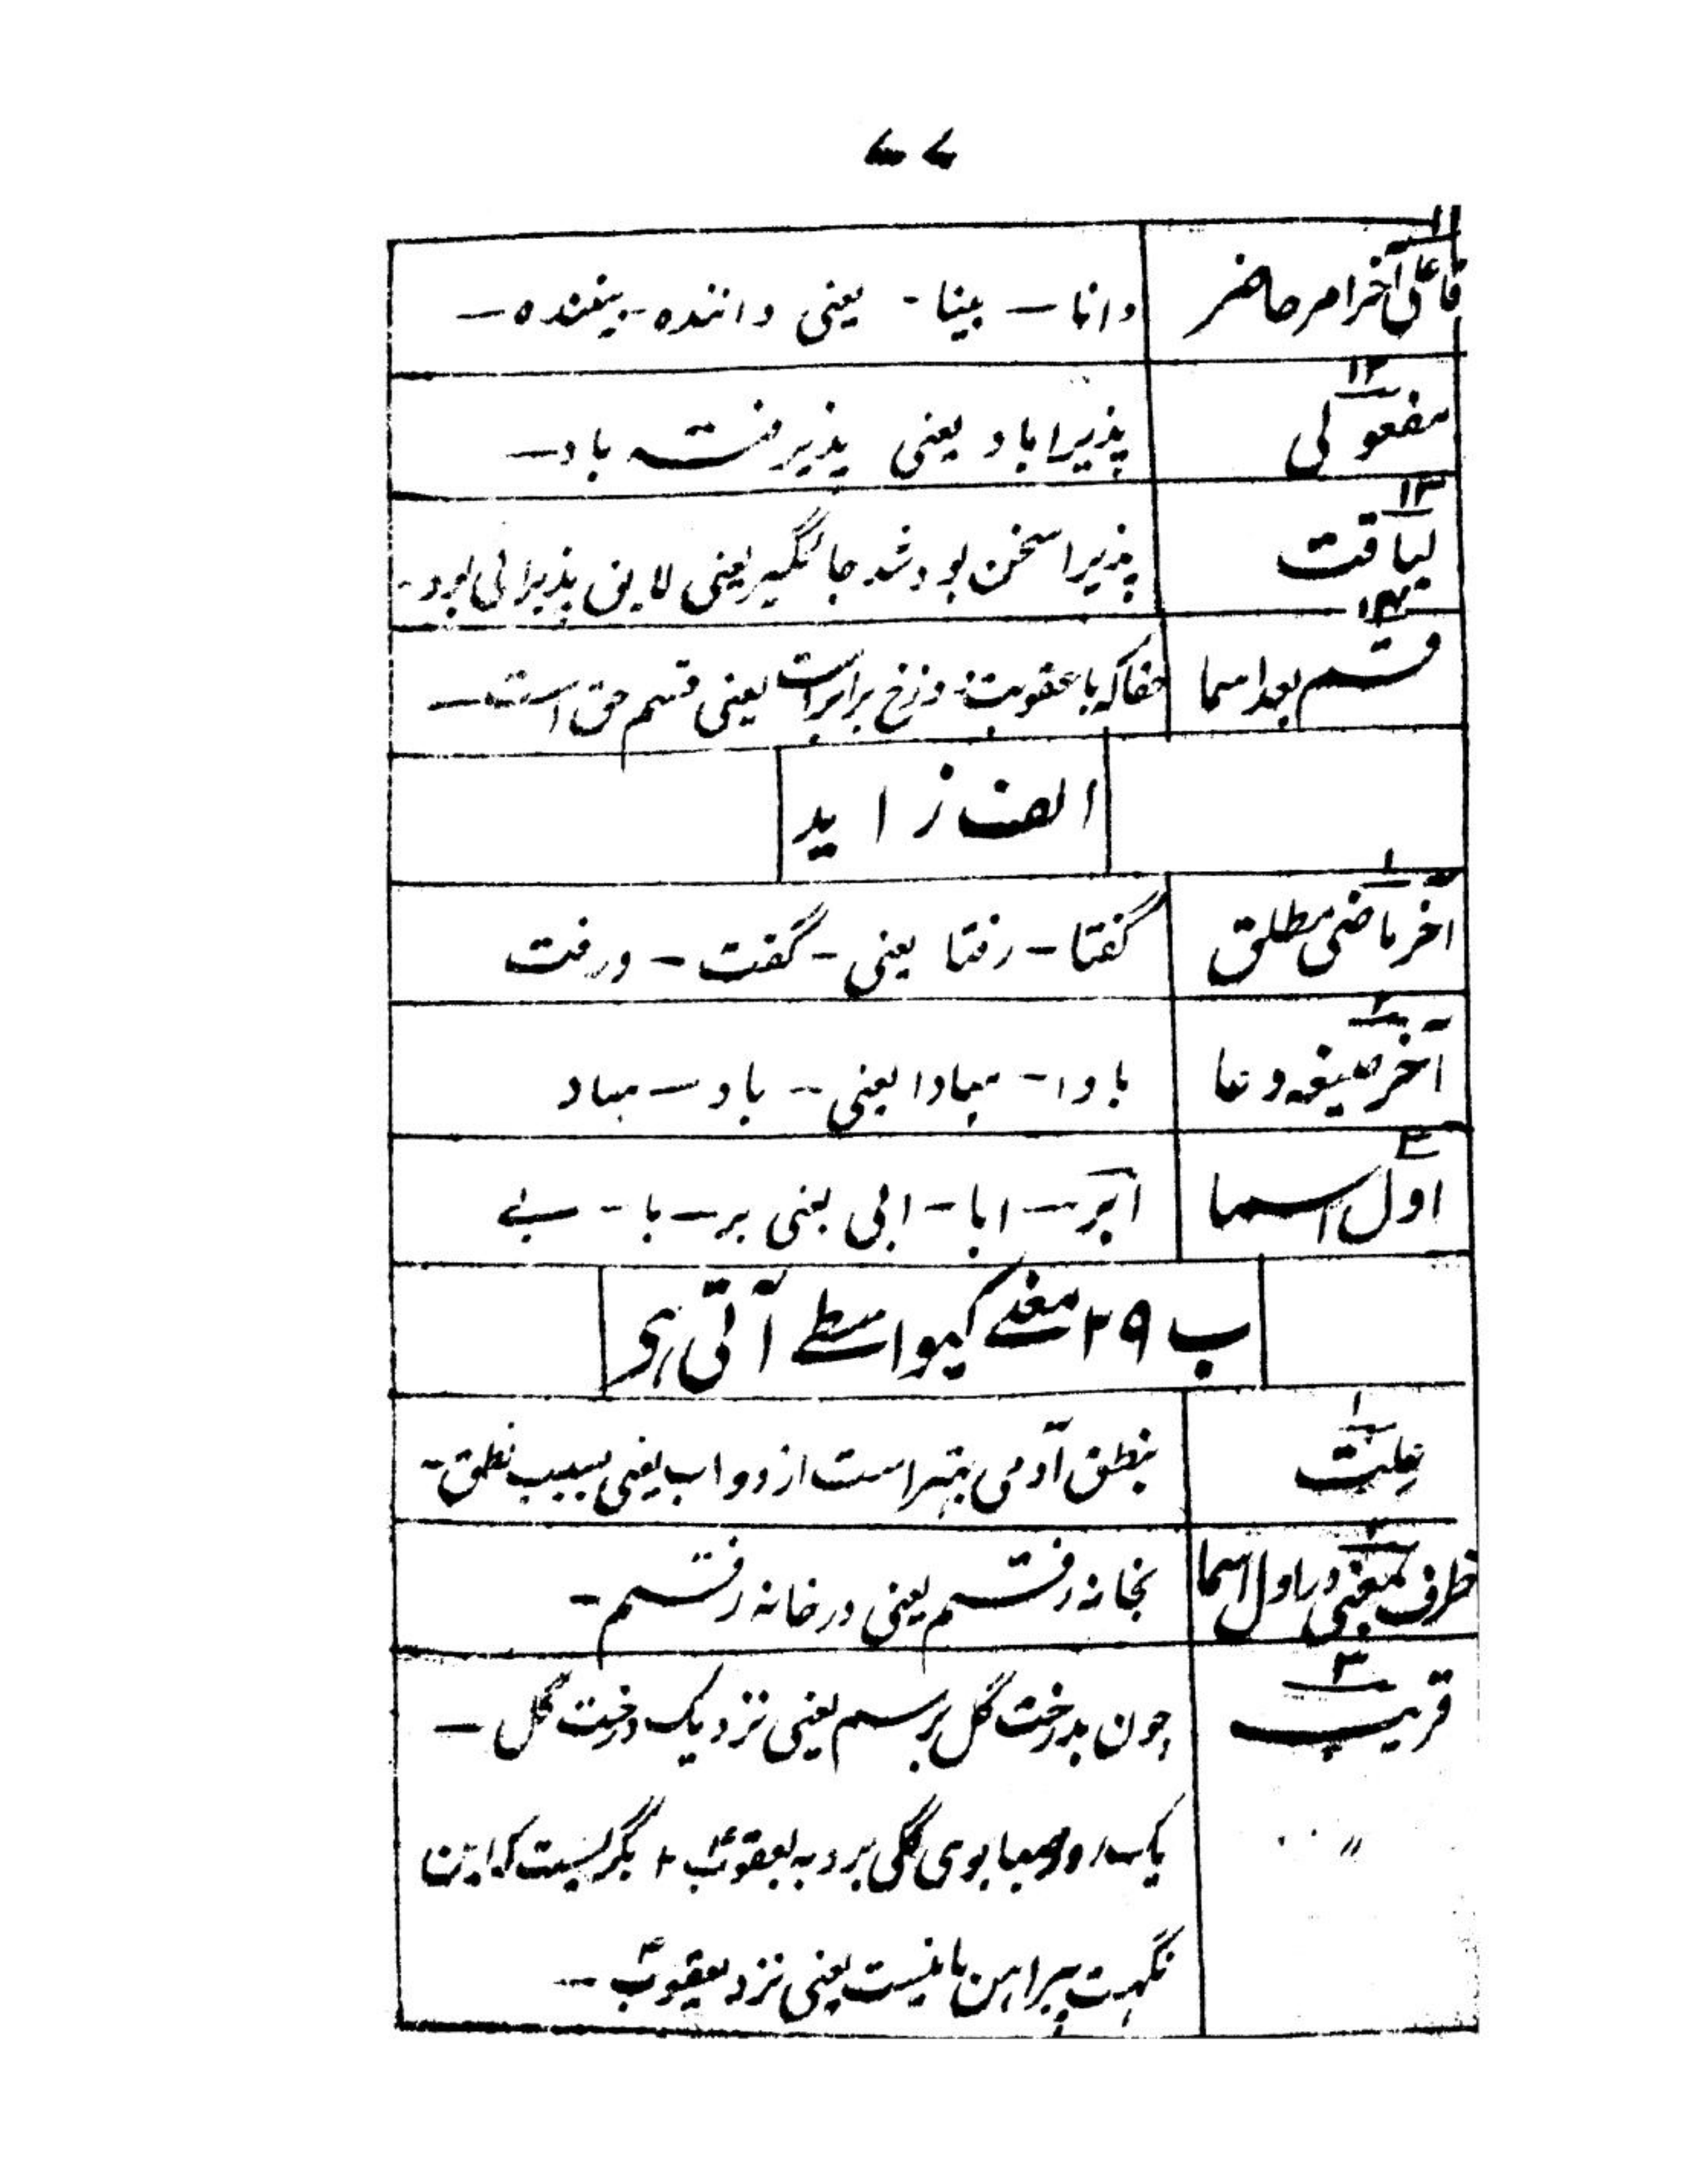 ۷۷
۱۱
فاعلی آخر امر حاضر دانا - بینا - یعنی داننده - بیننده -
۱۲
مفعولی پذیرا باد یعنی پذیرفته باد -
۱۳
لیاقت پذیرا سخن بود شد جائگیر یعنی لایق پذیرائی بود -
۱۴
قسم بعد اسما حقا که با عقوبت دوزخ برابر است یعنی قسم حق است -
الف زاید
۱
آخر ماضی مطلق گفتا - رفتا یعنی - گفت - ورفت
۲
آخر صیغه دعا بادا - مبادا یعنی - باد - مباد
۳
اول اسما ابر - ابا - ابی یعنی بر - با - بے
ب ۲۹ معنے کیواسطے آتی ہی
۱
علت بنطق آدمی بہتر است از دواب یعنی بسبب نطق -
۲
ظرف بمعنی در اول اسما بخانہ رفتم یعنی در خانہ رفتم -
۳
قریب چون بدرخت گل برسم یعنی نزدیک درخت گل -
" یک روز صبا بوی گلی برد بہ یعقوبؑ بگریست کہ این
نگہت پیراہن ما نیست یعنی نزد یعقوبؑ -